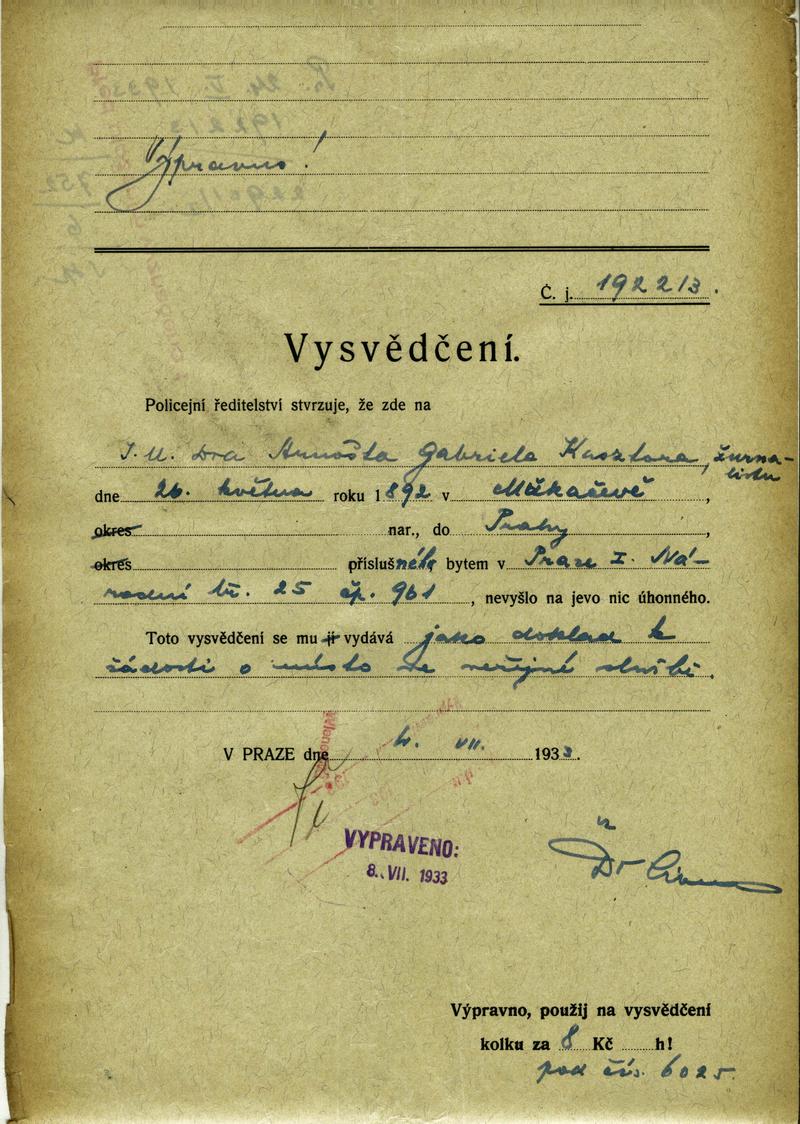 Výpravno!
Č. j. 19221/3.
Vysvědčení.
Policejní ředitelství stvrzuje, že zde na
J. U. Dra Arnošta Gabriela Kasztora, žurna-
listu
dne 26. května roku 1892 v Mukačevě,
okres nar., do Prahy,
okres příslušného bytem v Praze I. Ná-
rodní tř. 25 čp. 961, nevyšlo na jevo nic úhonného.
Toto vysvědčení se mu-jí vydává jako doklad k
žádosti o místo ve veřejné službě.
V PRAZE dne 4. VII. 1933.
VYPRAVENO:
8. VII. 1933
Dr
Výpravno, použij na vysvědčení
kolku za 8 Kč h!
pod čís. 6025.